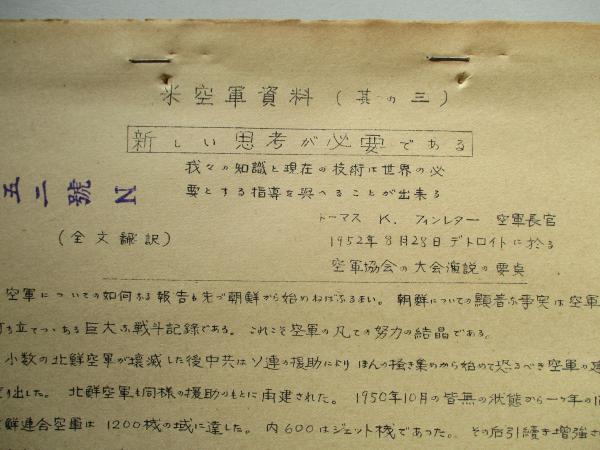 米空軍資料(其の三)
新しい思考が必要である
我々の知識と現在の技術は世界の必
要とする指導を與へることが出来る
トーマス K. フィンレター 空軍長官
(全文飜訳)
1952年8月28日デトロイトに於る
空軍協会の大会演説の要点
五二號 N
空軍についての如何なる報告も先づ朝鮮から始めねばなるまい。 朝鮮についての顕著な事実は空軍
打ち立てつゝある巨大な戦斗記録である。 これこそ空軍の凡ての努力の結晶である。
小数の北鮮空軍が壊滅した後中共はソ連の援助により ほんの掻き集めから始めて恐るべき空軍の建
り出した。 北鮮空軍も同様の援助のもとに再建された。 1950年10月の皆無の状態から一ヶ年の
鮮連合空軍は 1200機の域に達した。 内600はジェット機であった。 その后引続き増強さ